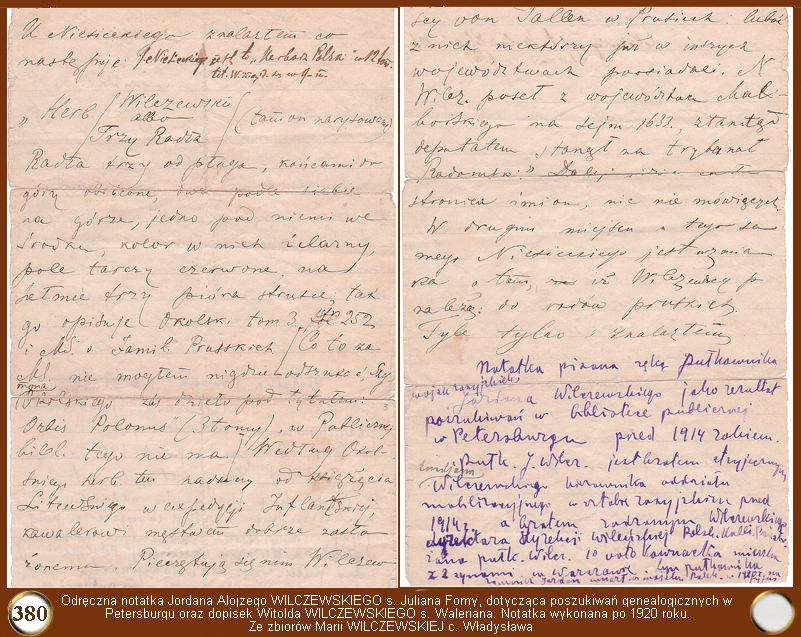 U Niesieckiego znalazłem co
następuje:
„Herb Wilczewski
albo
Trzy Radła
(tam on narysowany)
Radła trzy od pługa, końcami do
góry obrócone, dwa podle siebie
na górze, jedno pod niemi we
środku, kolor w nich żelazny,
pole tarczy czerwone, na
hełmie trzy pióra strusie, tak
go opisuje Okolski tom 3, 252
i MS. o Famil. Prusskich (Co to za
MS. nie mogłem nigdzie
Okolskiego zaś dzieło pod tytułem:
Orbis Polonus" (3 tomy), w Publicznej
bibl. tego nie ma.) Według Okol-
skiego herb ten nadany od księżęcia
Litewskiego w expedycji Inflantskiej
kawalerowi męstwem dobrze zasłu
żonemu. Pieczętują się nim Wilczew-
scy von Tallen w Prusiech: luboć
z nich niektórzy już w inszych
województwach possiadali. N
Wilcz. poseł z województwa Mal-
borskiego na sejm 1633., ztamtąd
deputatem stanął na trybunał
Radomski." Dalej
stronica imion, nic nie mówiących.
W drugim miejscu u tego sa
mego Niesieckiego jest wzmian
ka o tem, iż Wilczewscy p
należą do rodów pruskich.
Tyle tylko i znalazłem
Notatka pisana ręką pułkownika
wojsk rosyjskich
Jordana Wilczewskiego jako rezultat
poszukiwań w bibliotece publicznej
w Petersburgu przed 1914 rokiem.
pułk. J. Wilcz. jest bratem stryjecznym
Wilczewskiego kierownika oddziału
mobilizacyjnego w sztabie rosyjskim przed
1914 r. a bratem rodzonym Wilczewskiego
dyrektora Dyrekcji Wileńskiej Polsk. Kolei
żona pułk. Wilcz. 1° voto mieszka
z synami w Warszawie.
380
Odręczna notatka Jordana Alojzego WILCZEWSKIEGO s. Juliana Fomy, dotycząca poszukiwań genealogicznych w
Petersburgu oraz dopisek Witolda WILCZEWSKIEGO s. Waleriana. Notatka wykonana po 1920 roku.
Ze zbiorów Marii WILCZEWSKIEJ c. Władysława